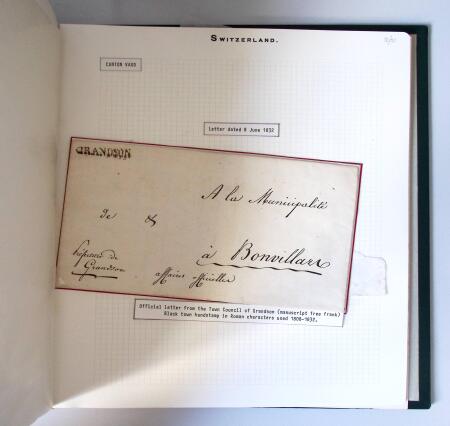 SWITZERLAND.
CANTON VAUD
Letter dated 8 June 1832
GRANDSON
A la Municipalité
de &
à Bonvillars
Préfecture de
Grandson
affaires officielles
Official letter from the Town Council of Grandson (manuscript free frank)
Black town handstamp in Roman characters used 1808-1832.